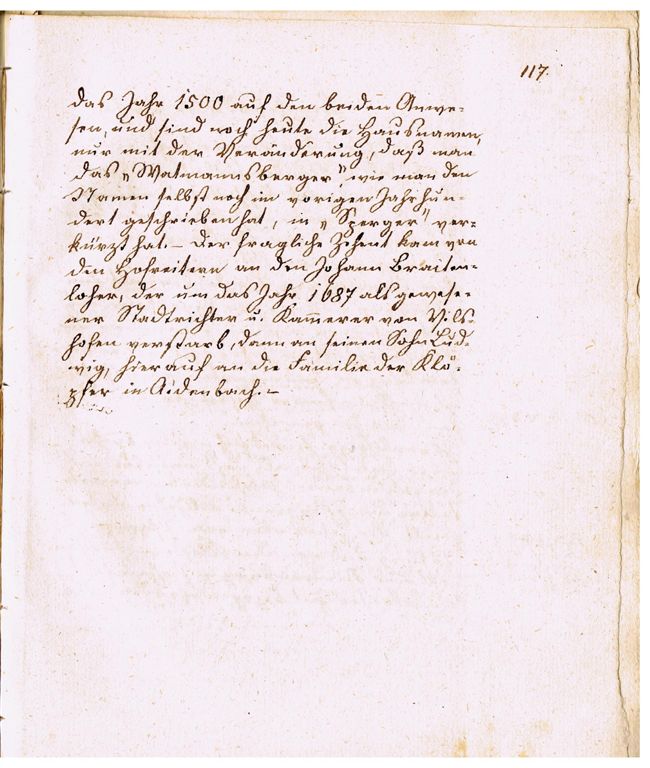 117.
das Jahr 1500 auf den beiden Anwe-
sen, und sind noch heute die Hausnamen,
nur mit der Veränderung, daß man
das „Watmannsberger", wie man den
Namen selbst noch im vorigen Jahrhun-
dert geschrieben hat, in „Sperger" ver-
kürzt hat. – Der fragliche Zehent kam von
den Hofreitern an den Johann Braiten-
loher, der um das Jahr 1687 als gewese-
ner Stadtrichter u. Kammerer von Vils-
hofen verstarb, dann an seinen Sohn Lud-
wig, hierauf an die Familie der Klö-
pfer in Aidenbach. –